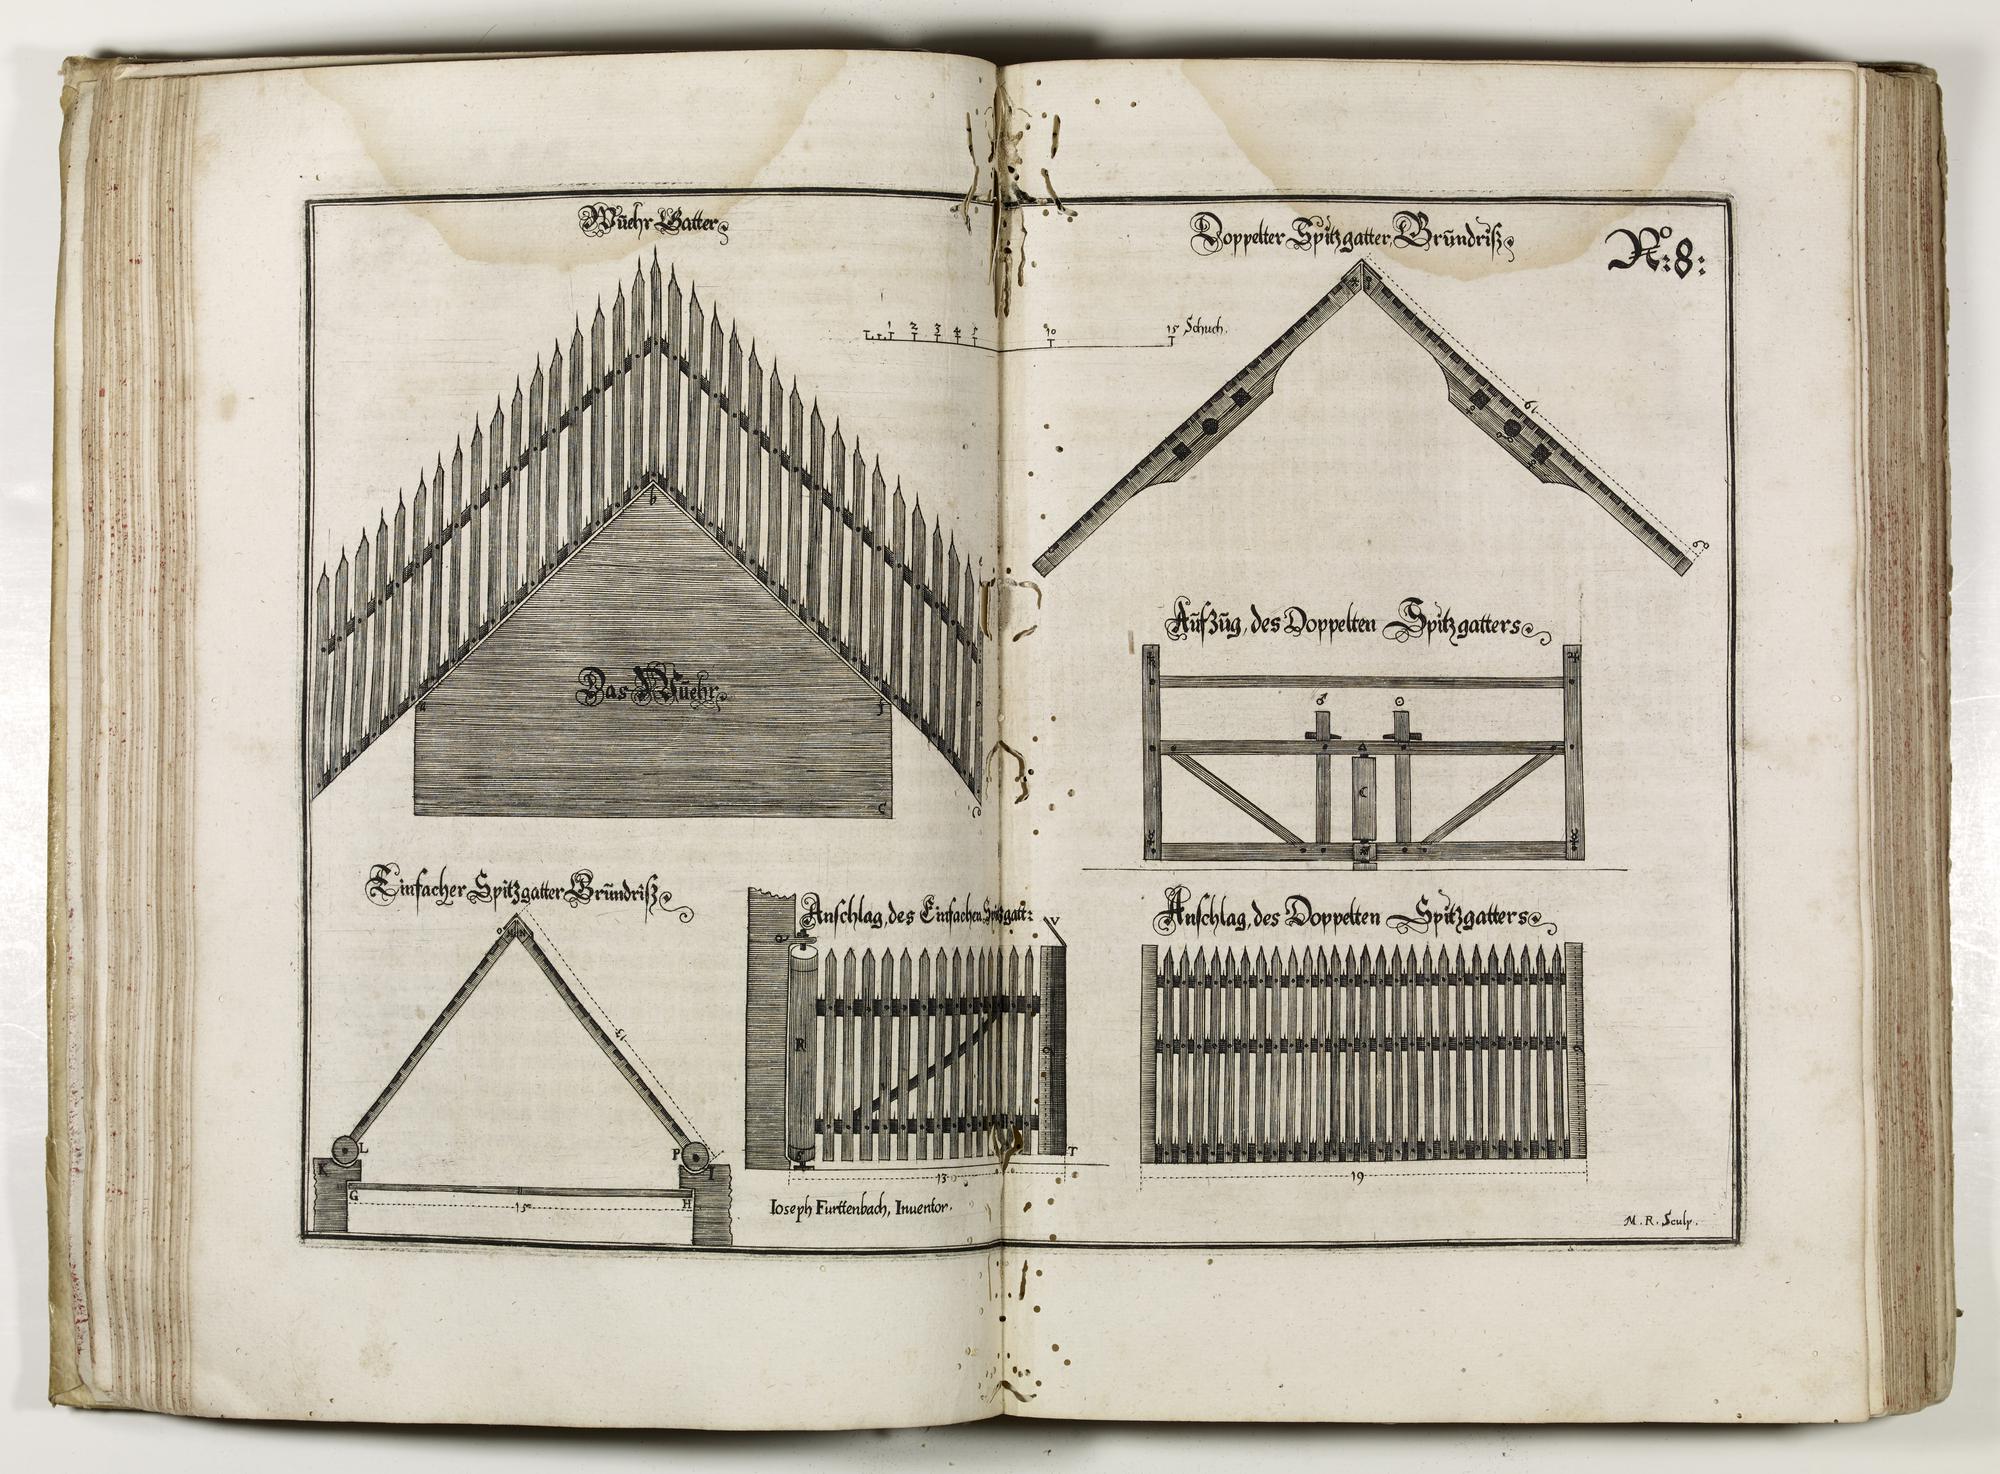 Wuehr Gatter
Doppelter Spitzgatter Grundriß
No: 8:
1 2 3 4 5 10 15 Schuch.
19
6
b
Das Wuehr
a f
c
Aufzug, des Doppelten Spitzgatters
♂ ☉
☾
Einfacher Spitzgatter Grundriß
O
13
L P
K I
G H
15
Anschlag, des Einfachen Spitzgatt:
V
R
9
S T
13
Anschlag, des Doppelten Spitzgatters
9
19
Ioseph Furttenbach, Inuentor.
M. R. Sculp.